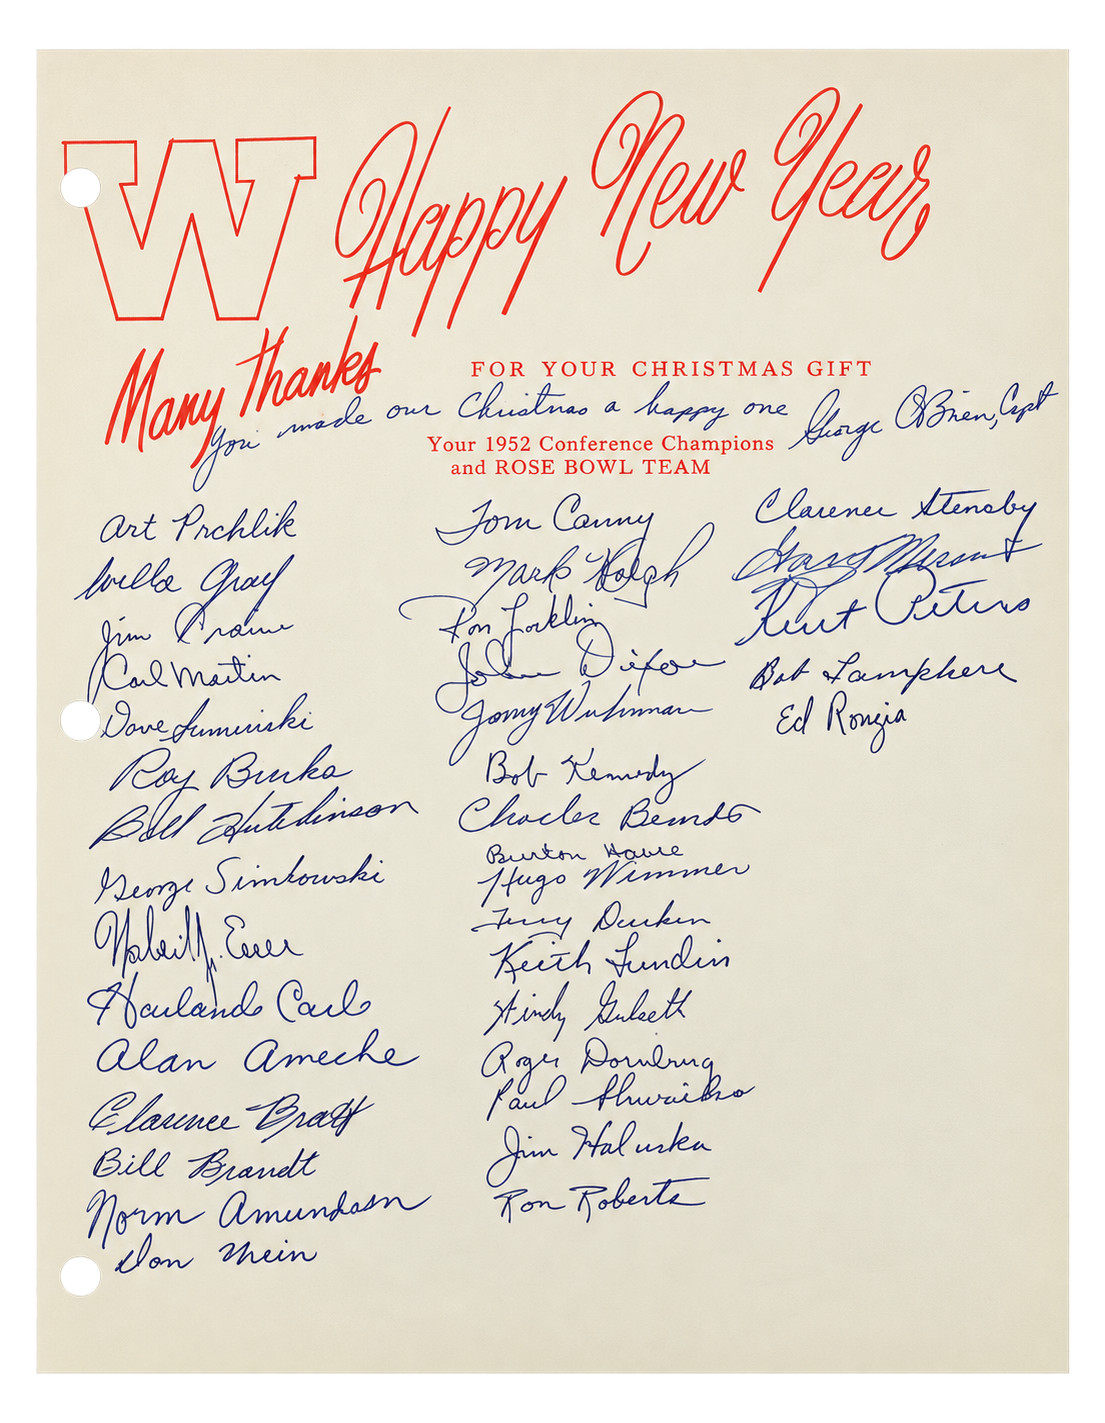 W Happy New Year
Many Thanks
FOR YOUR CHRISTMAS GIFT
You made our Christmas a happy one George O'Brien, Capt
Your 1952 Conference Champions
and ROSE BOWL TEAM
Art Prchlik
Willa Gray
Jim Craine
Carl Martin
Dave Suminski
Roy Burks
Bill Hutchinson
George Simkowski
Jr. Esser
Harland Carl
Alan Ameche
Clarence Bratt
Bill Brandt
Norm Amundsen
Don
Tom Canny
Mark Hoegh
Ron Locklin
John Dixon
Jerry Wuhrman
Bob Kennedy
Charles Berndt
Burton
Hugo Wimmer
Terry Durkin
Keith Lundin
Gulseth
Roger Dornburg
Paul Shwaiko
Jim Haluska
Ron Roberts
Clarence Stensby
Gary
Kurt Peters
Bob Lamphere
Ed Ronzia